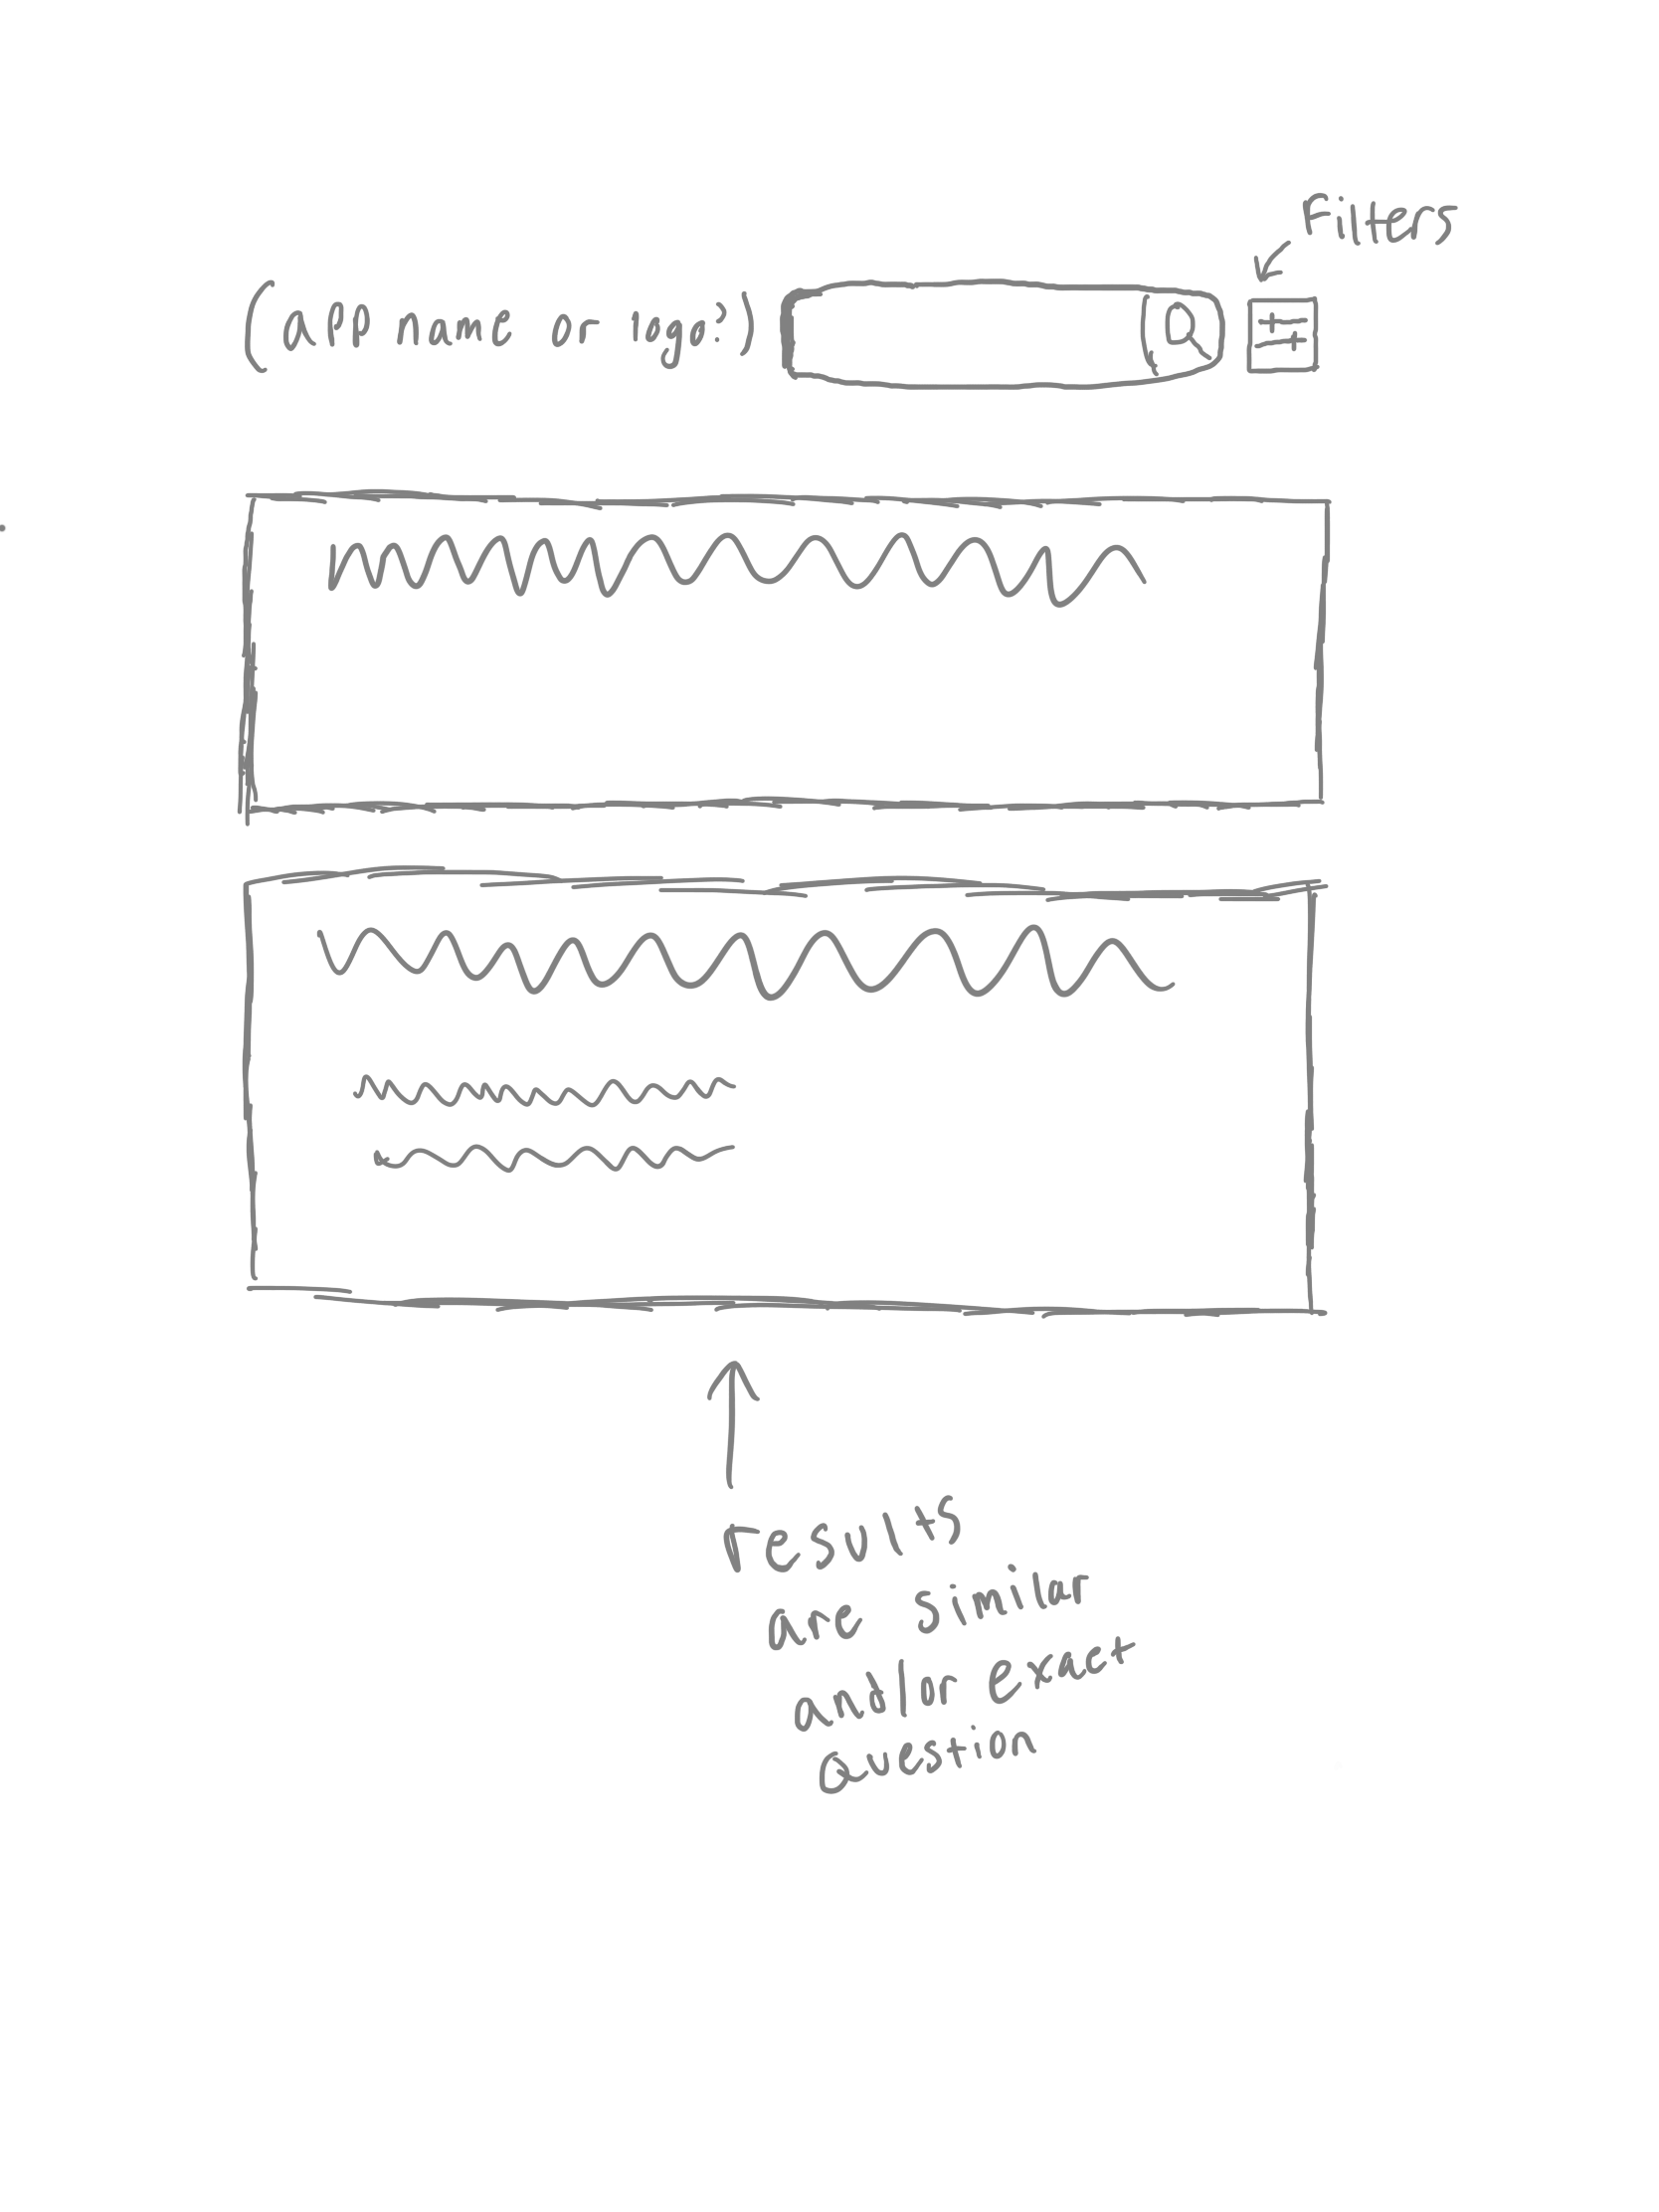 Filters
(app name or igo?)
results
are similar
and/or exact
Question